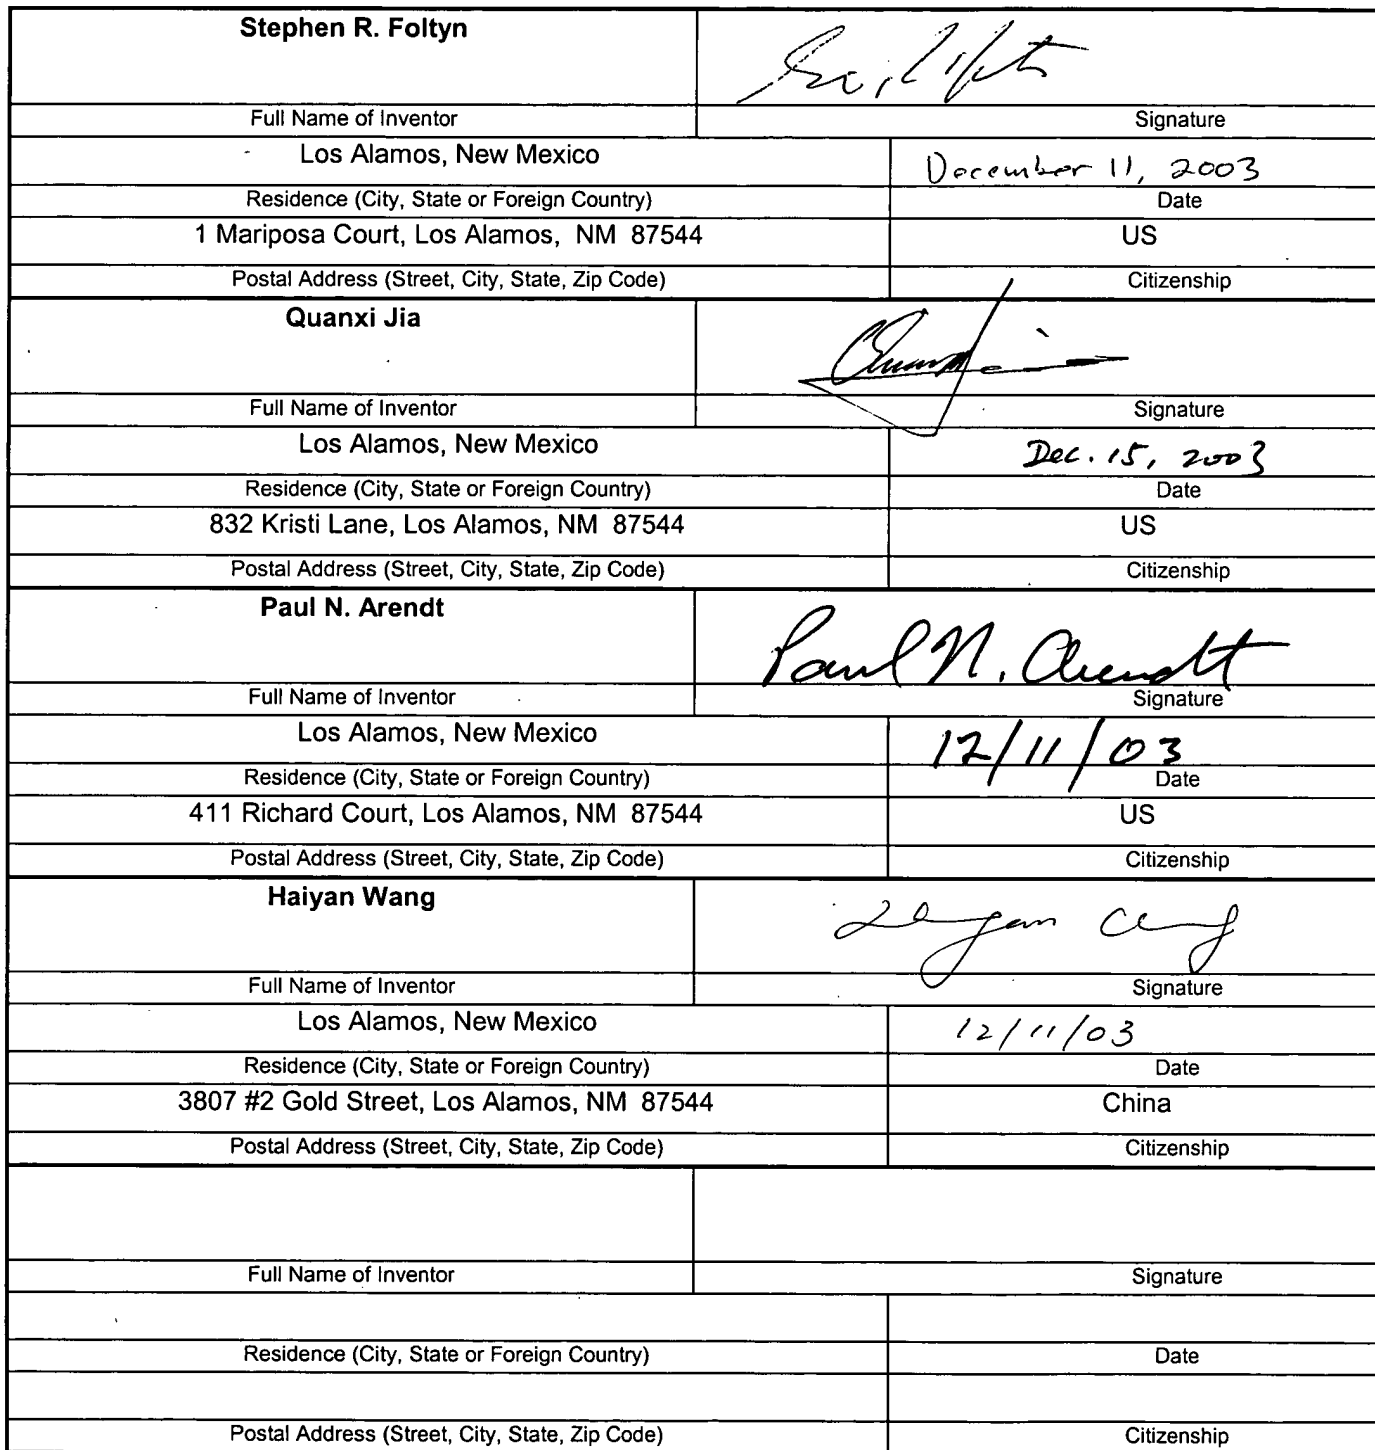 Stephen R. Foltyn
Full Name of Inventor Signature
Los Alamos, New Mexico December 11, 2003
Residence (City, State or Foreign Country) Date
1 Mariposa Court, Los Alamos, NM 87544 US
Postal Address (Street, City, State, Zip Code) Citizenship
Quanxi Jia
Full Name of Inventor Signature
Los Alamos, New Mexico Dec. 15, 2003
Residence (City, State or Foreign Country) Date
832 Kristi Lane, Los Alamos, NM 87544 US
Postal Address (Street, City, State, Zip Code) Citizenship
Paul N. Arendt Paul N. Arendt
Full Name of Inventor Signature
Los Alamos, New Mexico 12/11/03
Residence (City, State or Foreign Country) Date
411 Richard Court, Los Alamos, NM 87544 US
Postal Address (Street, City, State, Zip Code) Citizenship
Haiyan Wang
Full Name of Inventor Signature
Los Alamos, New Mexico 12/11/03
Residence (City, State or Foreign Country) Date
3807 #2 Gold Street, Los Alamos, NM 87544 China
Postal Address (Street, City, State, Zip Code) Citizenship
Full Name of Inventor Signature
Residence (City, State or Foreign Country) Date
Postal Address (Street, City, State, Zip Code) Citizenship